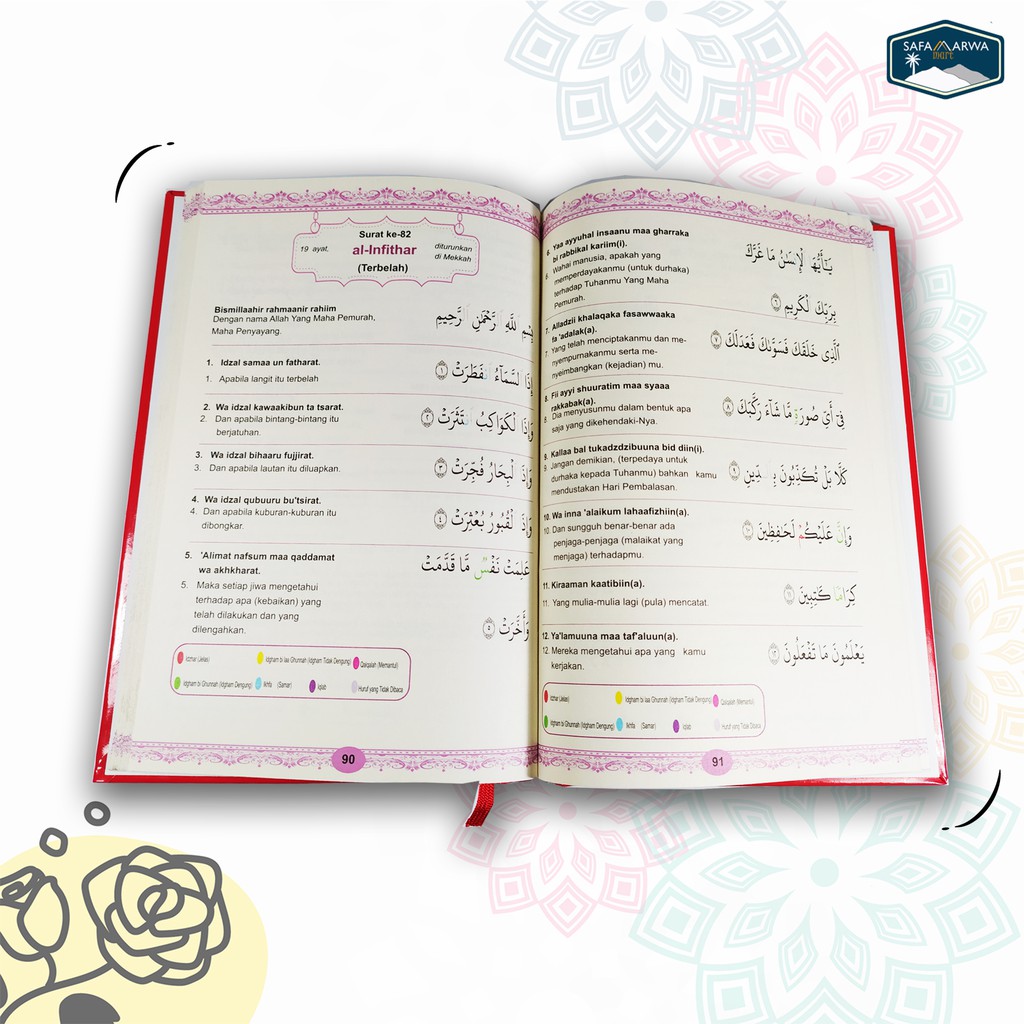 SAFA MARWA
mart
Surat ke-82
19 ayat,
al-Infithar
diturunkan
di Mekkah
(Terbelah)
Bismillaahir rahmaanir rahiim
Dengan nama Allah Yang Maha Pemurah,
Maha Penyayang.
1. Idzal samaa un fatharat.
1. Apabila langit itu terbelah
2. Wa idzal kawaakibun ta tsarat.
2. Dan apabila bintang-bintang itu
berjatuhan.
3. Wa idzal bihaaru fujjirat.
3. Dan apabila lautan itu diluapkan.
4. Wa idzal qubuuru bu'tsirat.
4. Dan apabila kuburan-kuburan itu
dibongkar.
5. 'Alimat nafsum maa qaddamat
wa akhkharat.
5. Maka setiap jiwa mengetahui
terhadap apa (kebaikan) yang
telah dilakukan dan yang
dilengahkan.
عَلِمَتْ نَفْسٌ مَّا قَدَّمَتْ
وَأَخَّرَتْ ٥
Idzhar (Jelas)
Idgham bi laa Ghunnah (Idgham Tidak Dengung)
Qalqalah (Memantul)
Idgham bi Ghunnah (Idgham Dengung)
Ikhfa (Samar)
Iqlab
Huruf yang Tidak Dibaca
90
6. Yaa ayyuhal insaanu maa gharraka
bi rabbikal kariim(i).
6. Wahai manusia, apakah yang
memperdayakanmu (untuk durhaka)
terhadap Tuhanmu Yang Maha
Pemurah.
بِرَبِّكَ لْكَرِيمِ ٦
7. Alladzii khalaqaka fasawwaaka
fa 'adalak(a).
7. Yang telah menciptakanmu dan me-
nyempurnakanmu serta me-
nyeimbangkan (kejadian) mu.
ٱلَّذِى خَلَقَكَ فَسَوَّىٰكَ فَعَدَلَكَ ٧
8. Fii ayyi shuuratim maa syaaa
rakkabak(a).
8. Dia menyusunmu dalam bentuk apa
saja yang dikehendaki-Nya.
فِىٓ أَىِّ صُورَةٍ مَّا شَآءَ رَكَّبَكَ ٨
9. Kallaa bal tukadzdzibuuna bid diin(i).
9. Jangan demikian, (terpedaya untuk
durhaka kepada Tuhanmu) bahkan kamu
mendustakan Hari Pembalasan.
كَلَّا بَلْ تُكَذِّبُونَ بِٱلدِّينِ ٩
10. Wa inna 'alaikum lahaafizhiin(a).
10. Dan sungguh benar-benar ada
penjaga-penjaga (malaikat yang
menjaga) terhadapmu.
وَإِنَّ عَلَيْكُمْ لَحَٰفِظِينَ ١٠
11. Kiraaman kaatibiin(a).
11. Yang mulia-mulia lagi (pula) mencatat.
كِرَامًا كَٰتِبِينَ ١١
12. Ya'lamuuna maa taf'aluun(a).
12. Mereka mengetahui apa yang kamu
kerjakan.
يَعْلَمُونَ مَا تَفْعَلُونَ ١٢
Idzhar (Jelas)
Idgham bi laa Ghunnah (Idgham Tidak Dengung)
Qalqalah (Memantul)
Idgham bi Ghunnah (Idgham Dengung)
Ikhfa (Samar)
Iqlab
Huruf yang Tidak Dibaca
91